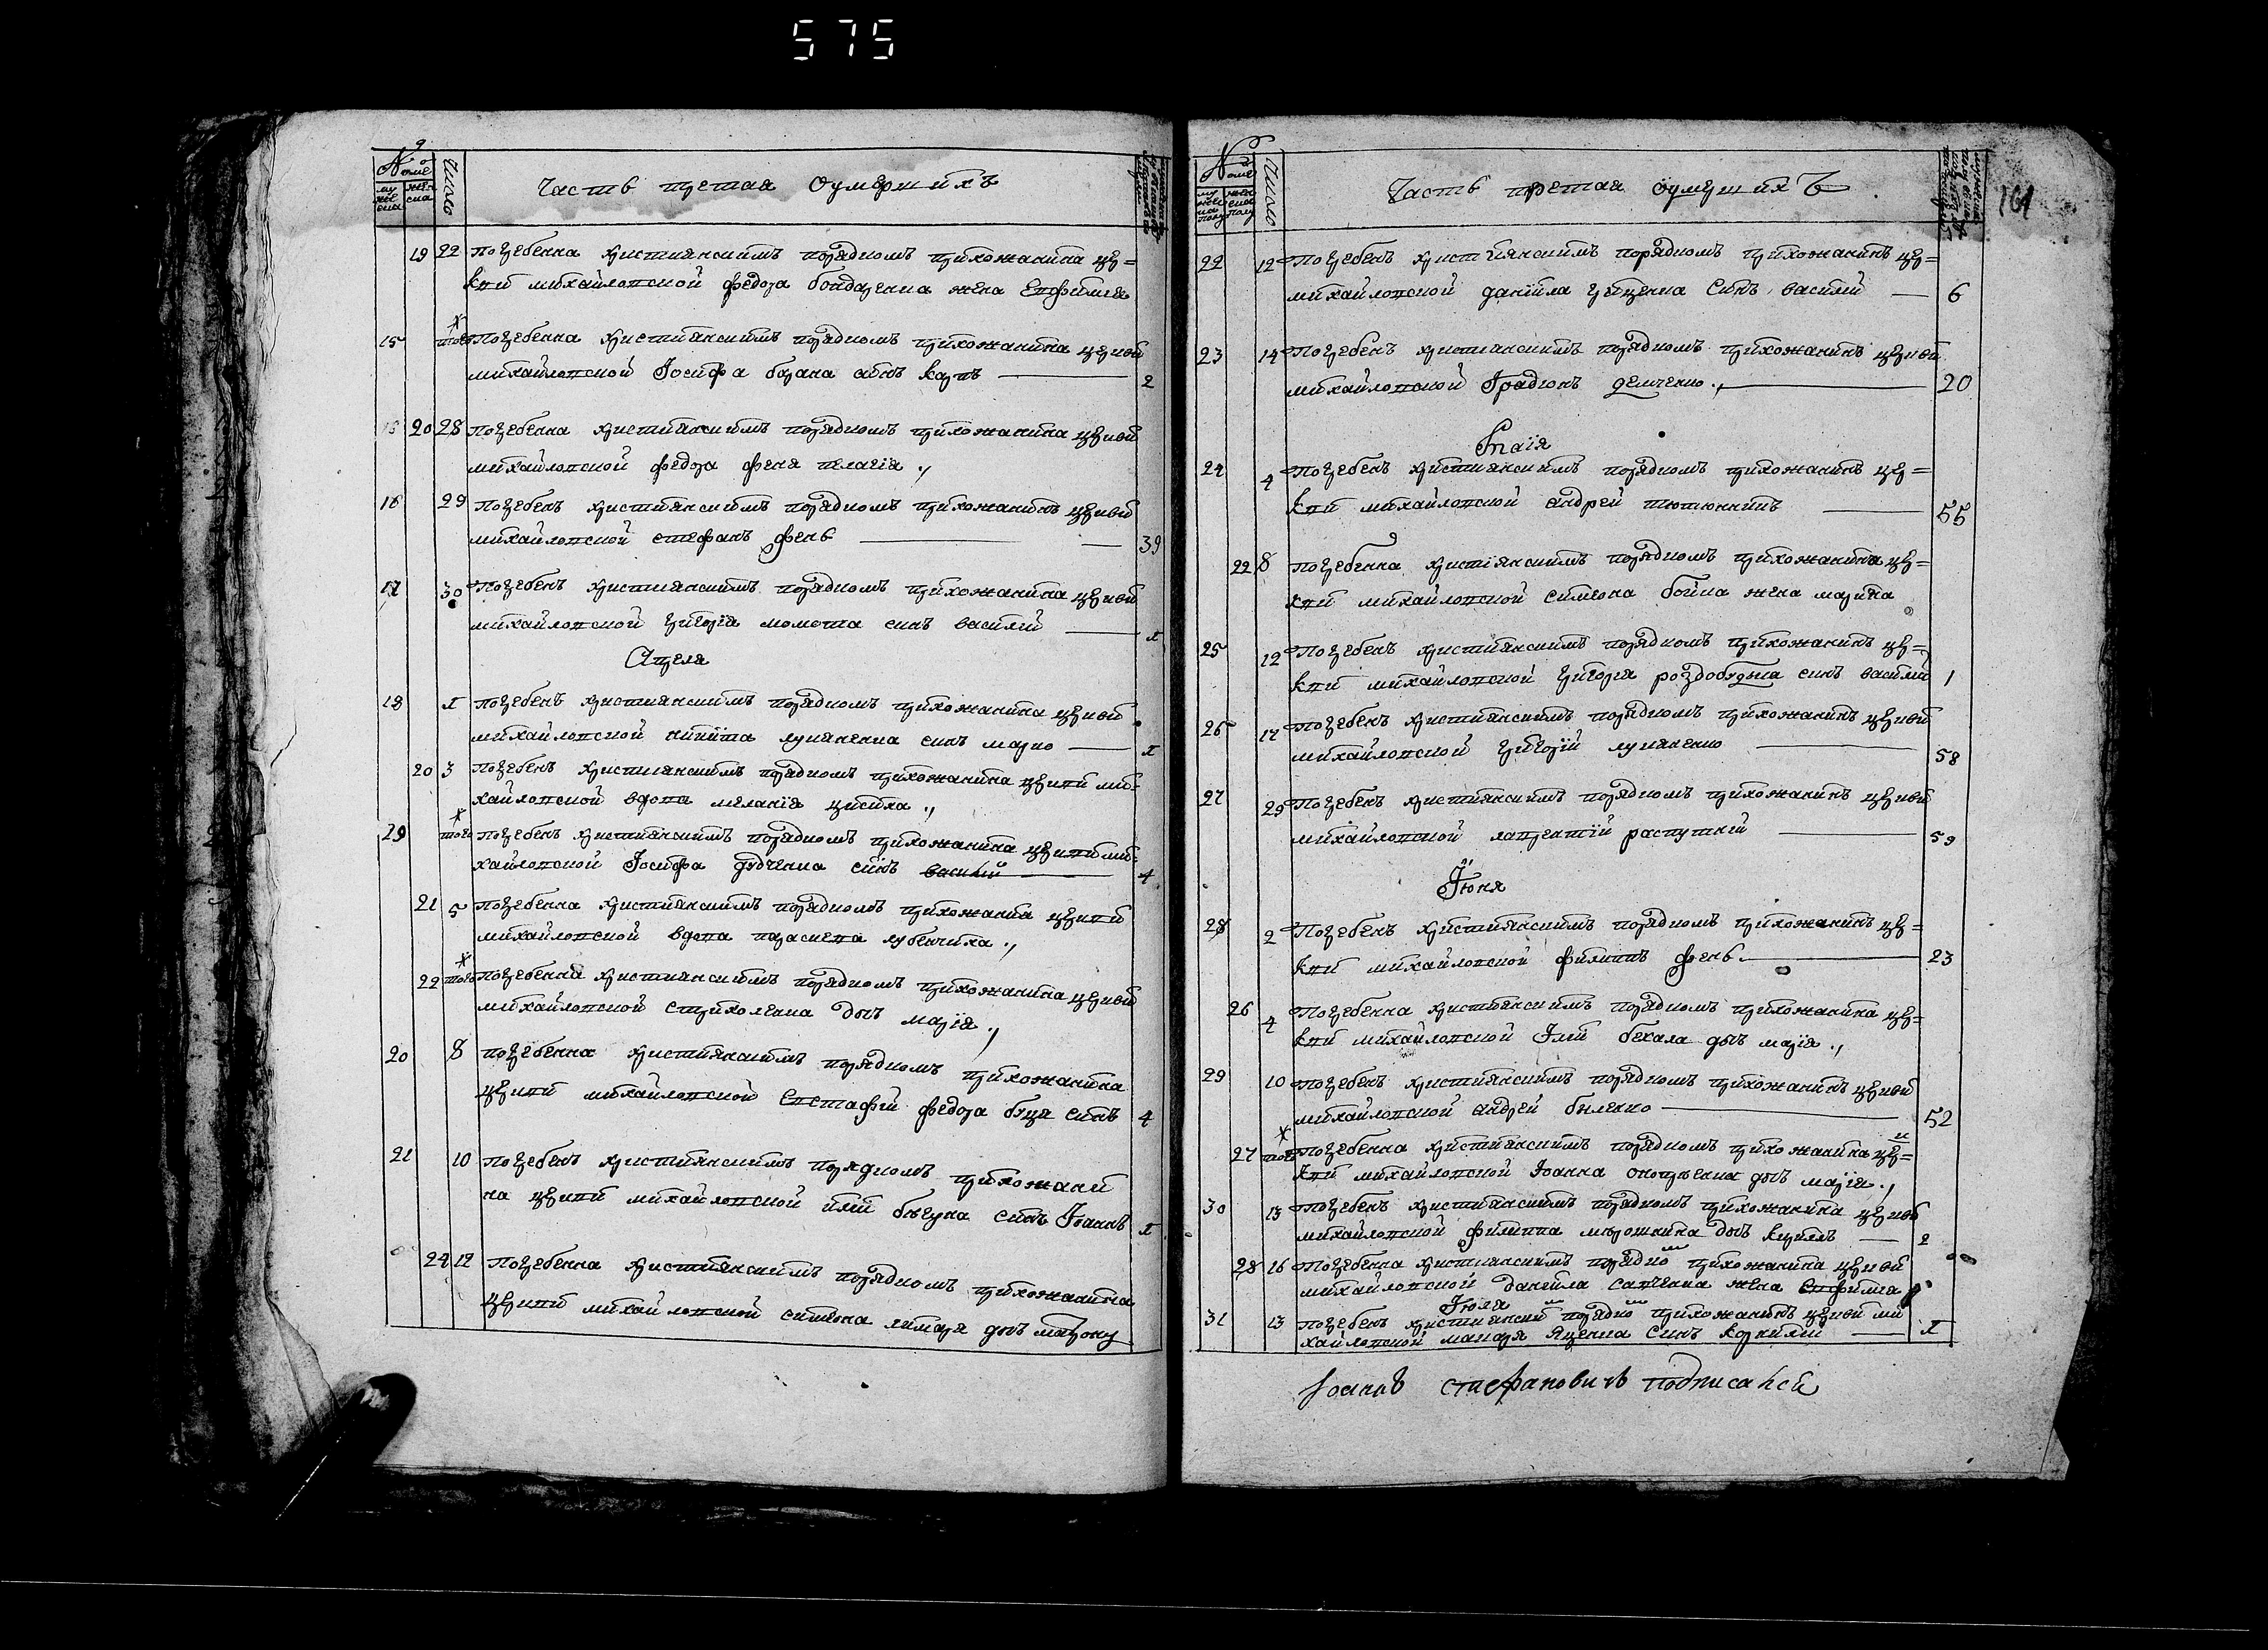 575
№
Число
Часть третая Оумершихъ
19 22 Погребенна християнскимъ порядкомъ прихожанина цер=
кви михайловской федора бондаренка жена Евфимия
15 того Погребенна християнскимъ порядкомъ прихожанина церкви
михайловской Iосифа барана синъ карпъ 2
20 28 Погребенна християнскимъ порядкомъ прихожанина церкви
михайловской федора феня пелагiя
16 29 Погребенъ християнскимъ порядкомъ прихожанинъ церкви
михайловской стефанъ фень 39
17 30 Погребенъ християнскимъ порядкомъ прихожанина церкви
михайловской григорiя момота синъ василiй 1
Апреля
18 1 Погребенъ християнскимъ порядкомъ прихожанина церкви
михайловской никита лукяненка синъ марко 1
20 3 Погребенъ християнскимъ порядкомъ прихожанина церкви ми=
хайловской вдова меланiя
19 того Погребенъ християнскимъ порядкомъ прихожанина церкви ми=
хайловской Iосифа дядченка синъ василiй 4
21 5 Погребенна християнскимъ порядкомъ прихожанина церкви
михайловской вдова параскева
22 того Погребенна християнскимъ порядкомъ прихожанина церкви
михайловской дочъ марiя
20 8 Погребенна християнскимъ порядкомъ прихожанина
церкви михайловской Евстафiй федора буця синъ 4
21 10 Погребенъ християнскимъ порядкомъ прихожани
на церкви михайловской илiи бегуна синъ Iоаннъ 1
24 12 Погребенна християнскимъ порядкомъ прихожанина
церкви михайловской симеона лимаря дочъ
№
Число
Часть третая Оумершихъ
161
22 12 Погребенъ христiянскимъ порядкомъ прихожанинъ цер=
михайловской данiила гриценка Синъ василiй 6
23 14 Погребенъ християнскимъ порядкомъ прихожанинъ церкви
михайловской Iродионъ демченко 20
Маiя
24 4 Погребенъ християнскимъ порядкомъ прихожанинъ цер=
кви михайловской андрей тютюнникъ 55
22 8 погребенна христiянскимъ порядкомъ прихожанина цер=
кви михайловской симеона бойка жена марина
25 12 Погребенъ християнскимъ порядкомъ прихожанинъ цер=
кви михайловской григория роздобудка синъ василiй 1
26 17 Погребенъ християнскимъ порядкомъ прихожанинъ церкви
михайловской григорiй лукяненко 58
27 29 Погребенъ християнскимъ порядкомъ прихожанинъ церкви
михайловской лаврентiй распутнiй 59
Iюня
28 2 Погребенъ християнскимъ порядкомъ прихожанинъ цер=
кви михайловской филиппъ фень 23
26 4 Погребенна християнскимъ порядкомъ прихожанина цер=
кви михайловской Iлiи бехала дочъ марiя
29 10 Погребенъ християнскимъ порядкомъ прихожанинъ церкви
михайловской андрей биленко 52
27 того Погребенна християнскимъ порядкомъ прихожанина цер=
кви михайловской Iоанна дочъ марiя
30 13 Погребенъ християнскимъ порядкомъ прихожанина церкви
михайловской филиппа мирошника дочъ кирилъ 2
28 16 Погребенна християнскимъ порядкомъ прихожанина церкви
михайловской данiила савченка жена Евфимия
Iюля
31 13 Погребенъ християнский порядко прихожанинъ церкви ми
хайловской макаря яценка Синъ корнилiй 1
Iоаннъ стефановичъ подписался